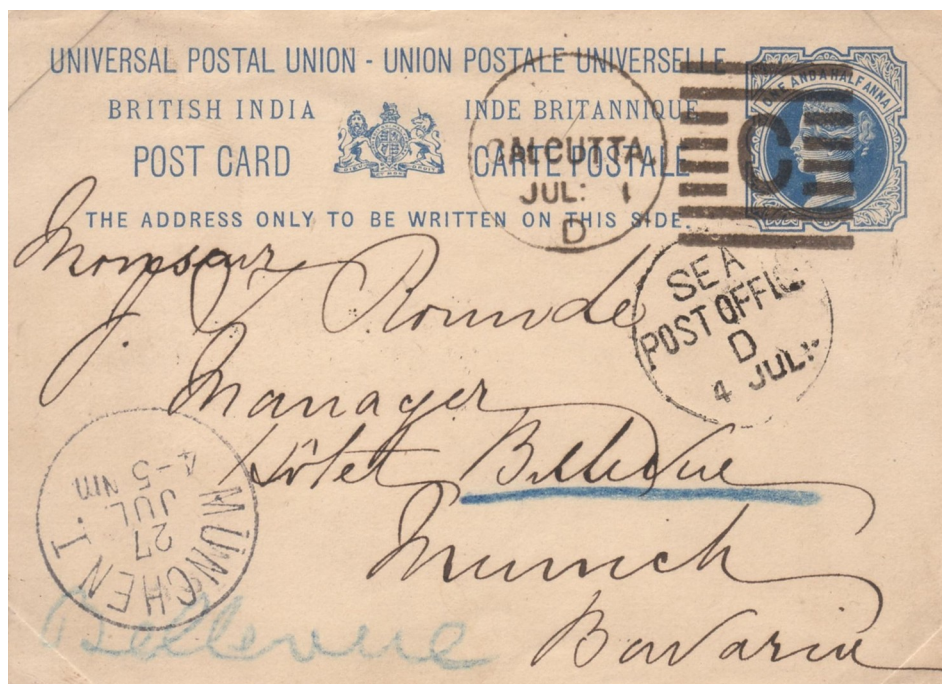 UNIVERSAL POSTAL UNION - UNION POSTALE UNIVERSELLE
BRITISH INDIA INDE BRITANNIQUE
POST CARD CARTE POSTALE
THE ADDRESS ONLY TO BE WRITTEN ON THIS SIDE.
ONE AND A HALF ANNA
CALCUTTA.
JUL: 1
D
C.
SEA
POST OFFICE
D
4 JULY
Monsieur
J. Rounde
Manager
Hôtel Bellevue
Munich
Bavaria
MÜNCHEN I
27
JUL
4-5
Nm
Bellevue